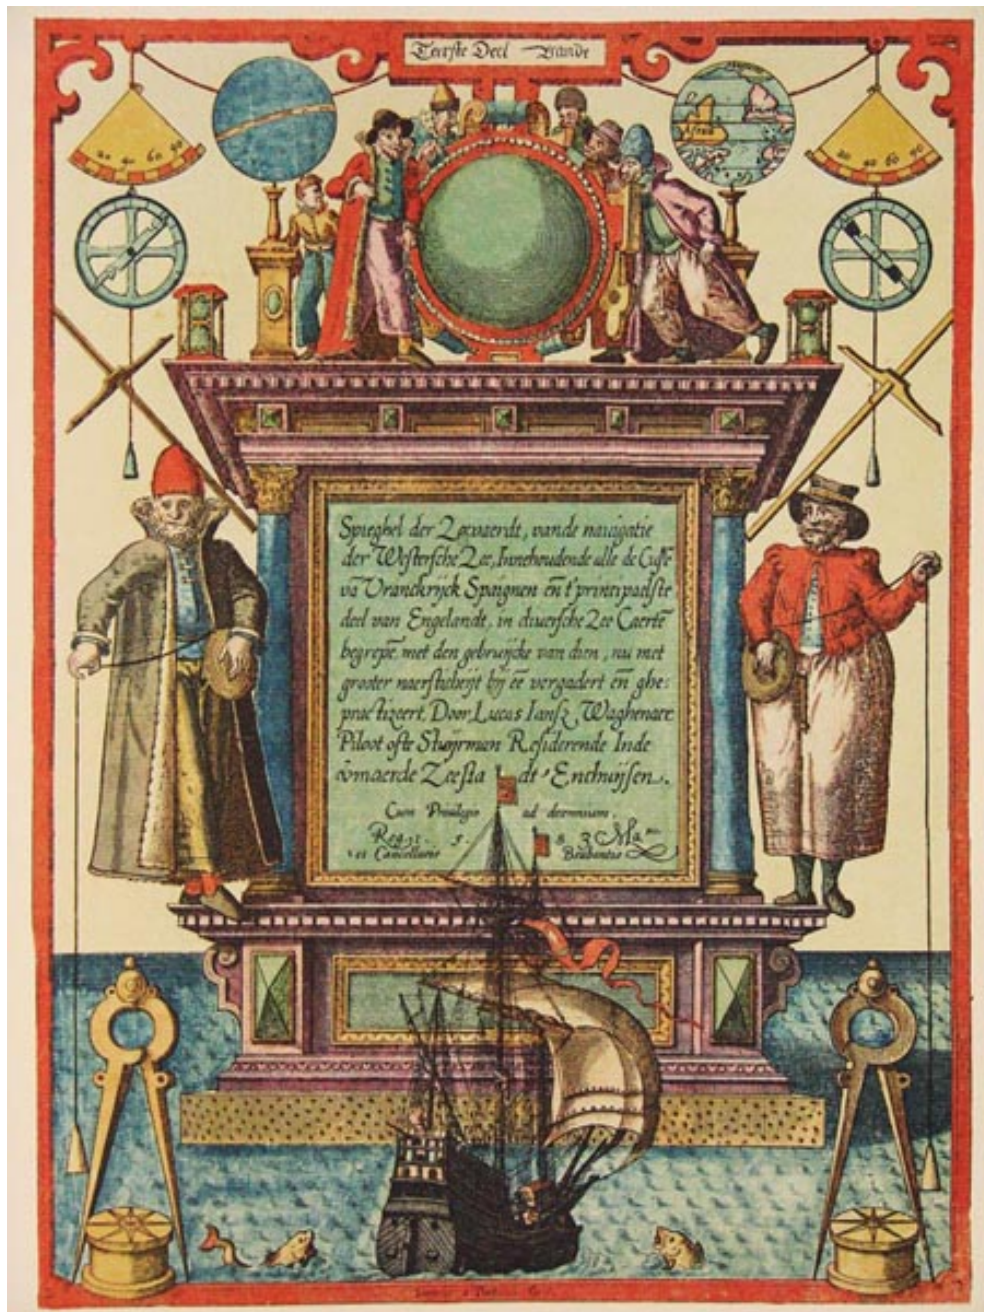 Teerste Deel Vande
20 40 60 90
20 40 60 90
Spieghel der Zeevaerdt, vande nauigatie
der Westersche Zee, Innehoudende alle de Custē
vā Vranckrijck Spaignen en̄ t'principaelste
deel van Engelandt, in diuersche Zee Caertē
begrepē, met den gebruijcke van dien, nu met
grooter naersticheijt bij eē vergadert en̄ ghe:
practizeert. Door Lucas Iansz Waghenaer
Piloot ofte Stuijrman Residerende Inde
vmaerde Zeesta dt Enchuijsen.
Cum Priuilegio ad decennium.
Reg. 1. 5. 8 3 Ma
et Cancellarie Brabantie